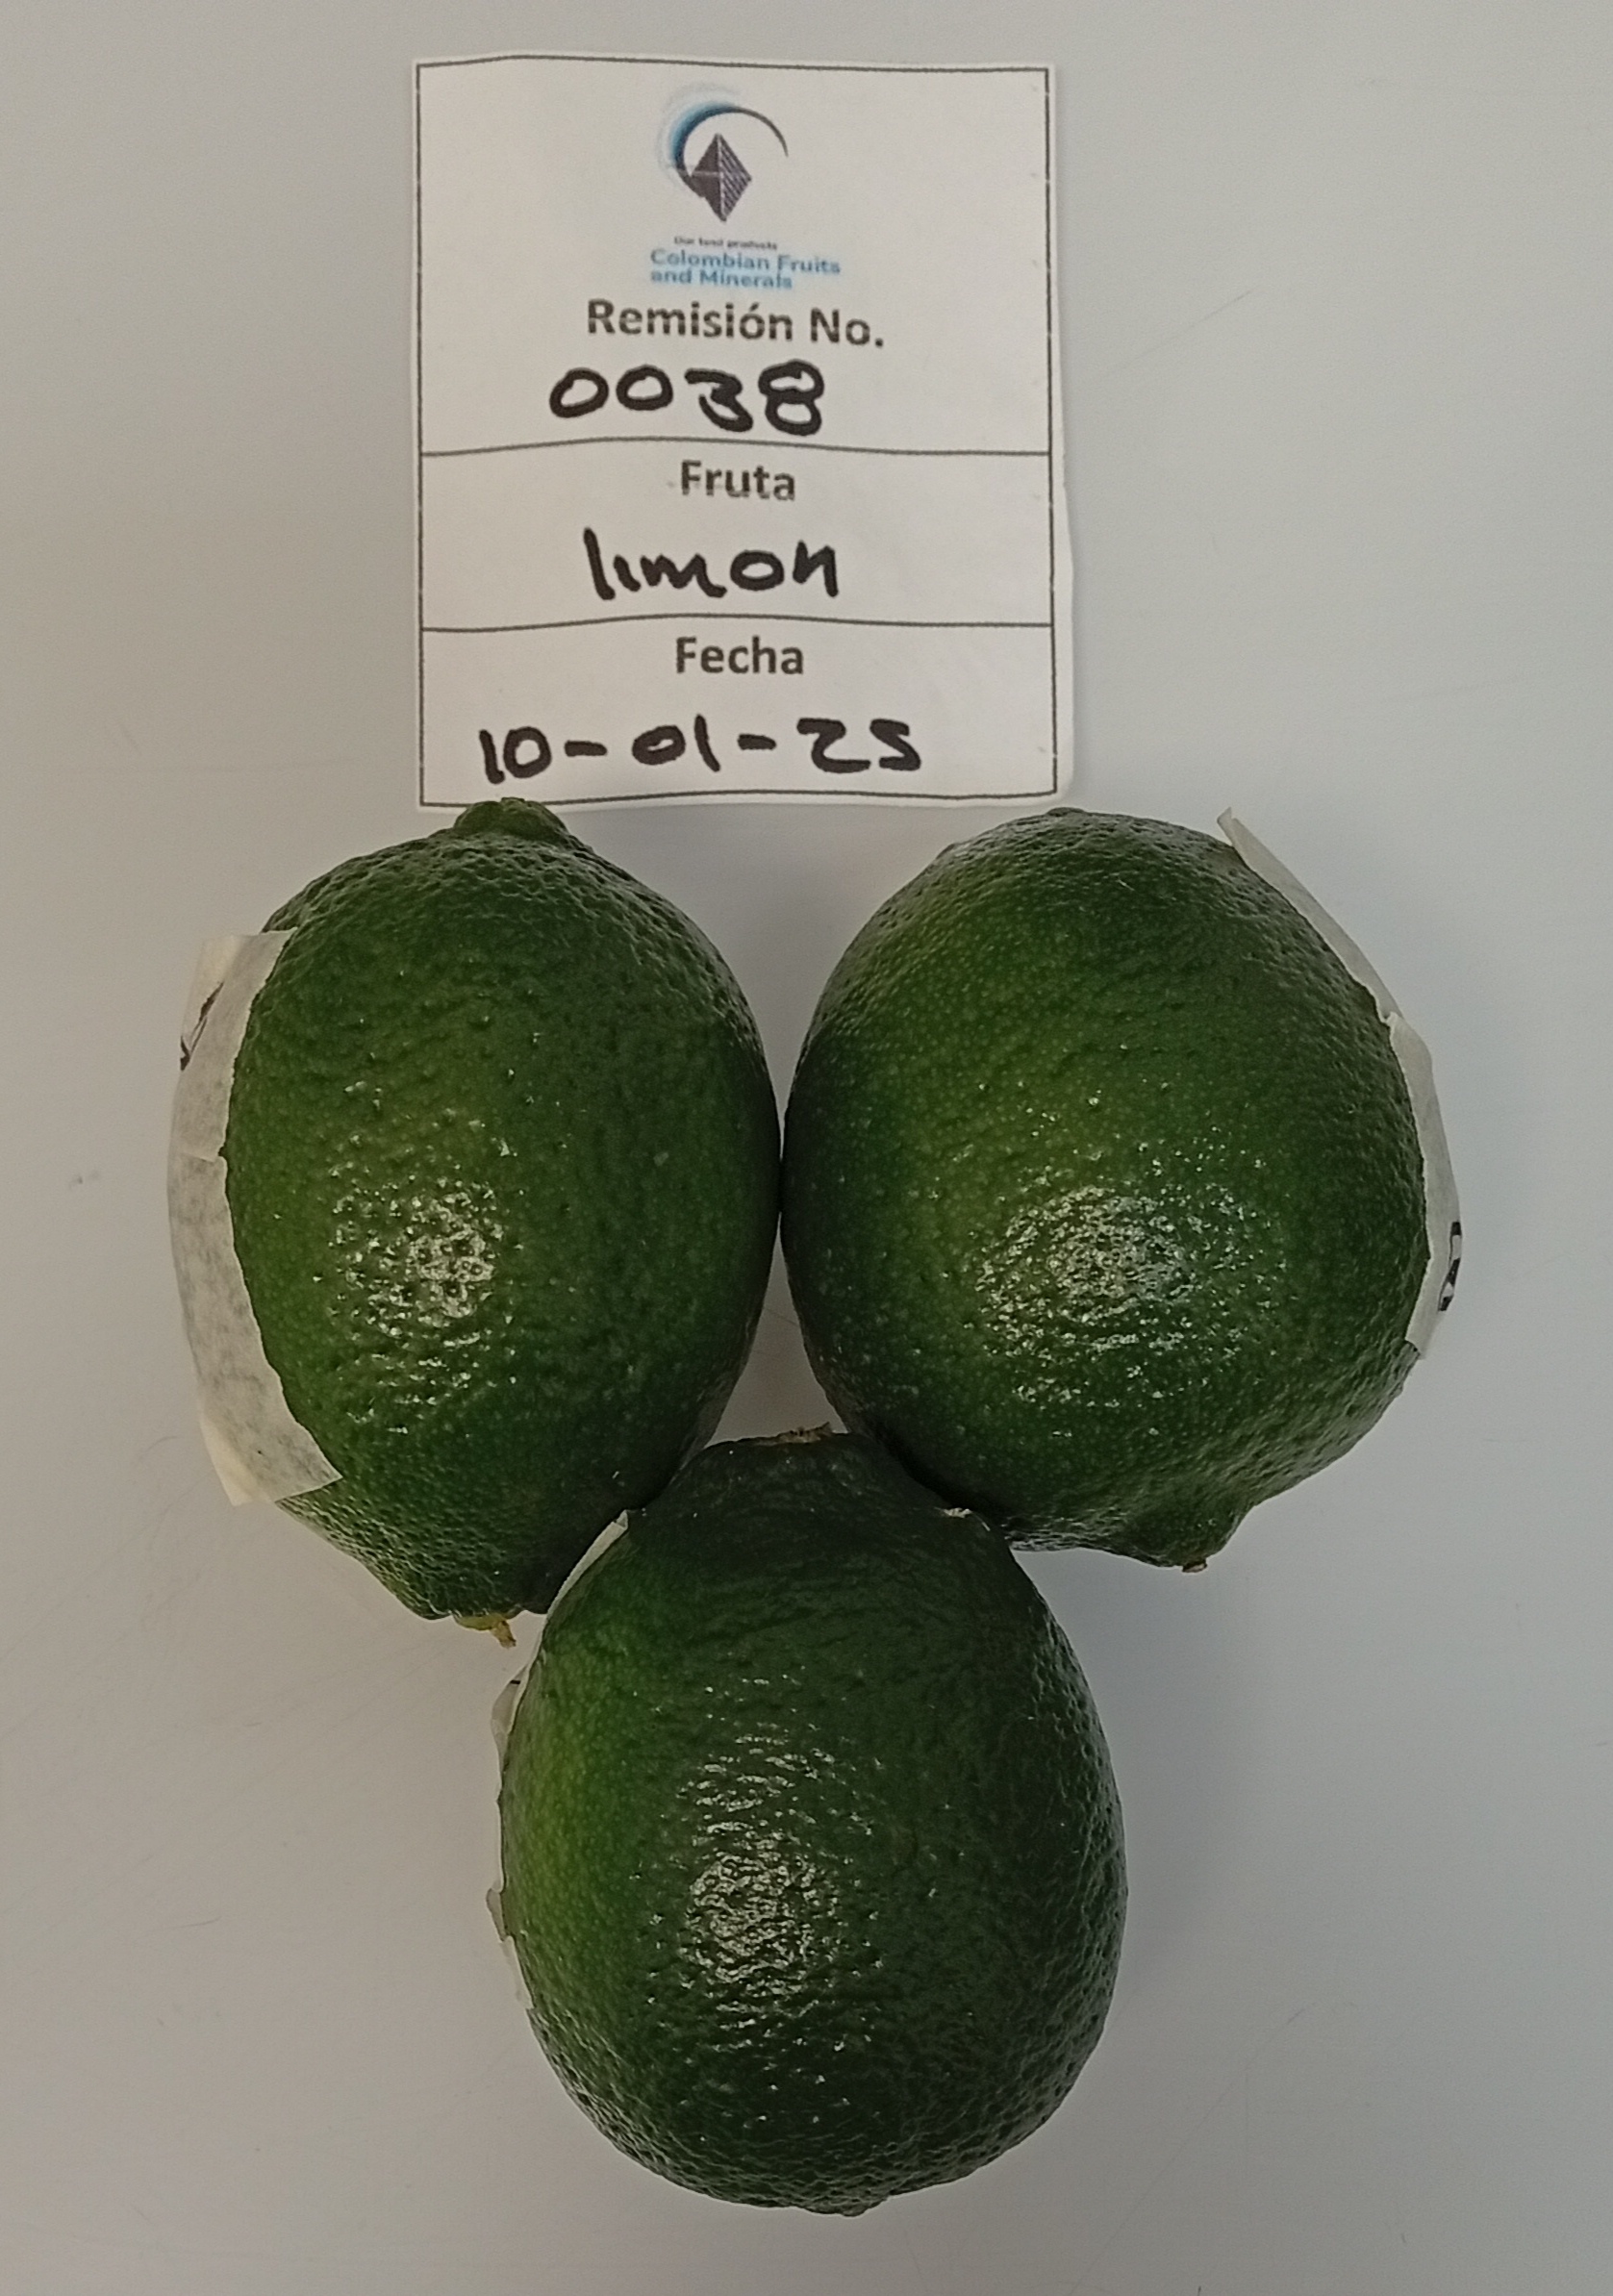 Our land products
Colombian Fruits
and Minerals
Remisión No.
0038
Fruta
limon
Fecha
10-01-25